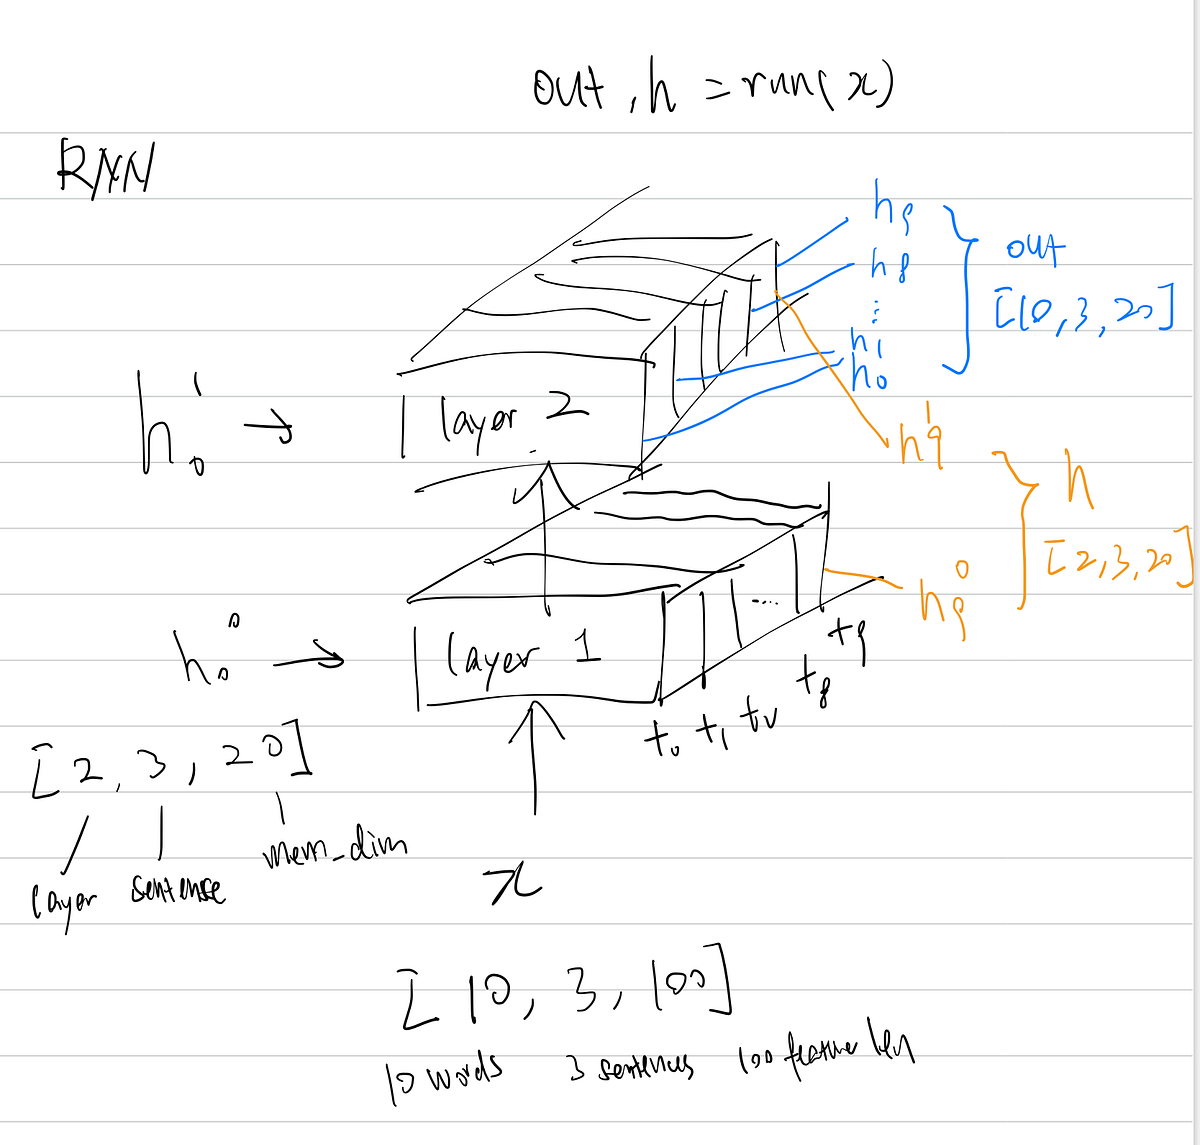 out, h = rnn(x)
RNN
h₉
h₈
⋮
h₁
h₀
out
[10, 3, 20]
h₀¹ →
layer 2
h₉¹
h
[2, 3, 20]
h₉⁰
h₀⁰ →
layer 1
....
t₀ t₁ t₂ t₈ t₉
[2, 3, 20]
layer sentence mem_dim
x
[10, 3, 100]
10 words 3 sentences 100 feature len